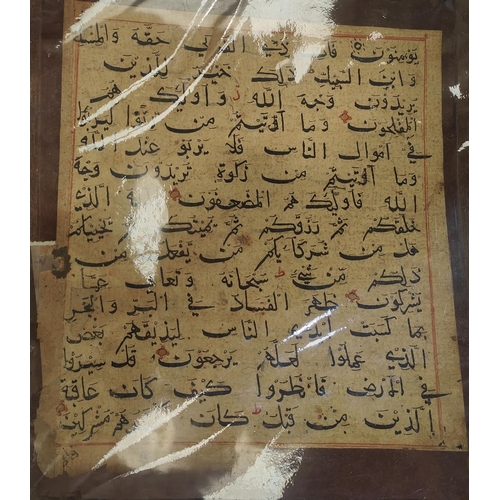 يؤمنون فات ذي القربى حقه والمسكين
وابن السبيل ذلك خير للذين
يريدون وجه الله واوليك هم
المفلحون وما اتيتم من ربوا ليربوا
في اموال الناس فلا يربو عند الله
وما اتيتم من زكوة تريدون وجه
الله فاوليك هم المضعفون الله الذي
خلقكم ثم رزقكم ثم يميتكم ثم يحييكم
هل من شركايكم من يفعل من
ذلكم من شي سبحانه وتعالى عما
يشركون ظهر الفساد في البر والبحر
بما كسبت ايدي الناس ليذيقهم بعض
الذي عملوا لعلهم يرجعون قل سيروا
في الارض فانظروا كيف كان عاقبة
الذين من قبل كان هم مشركين